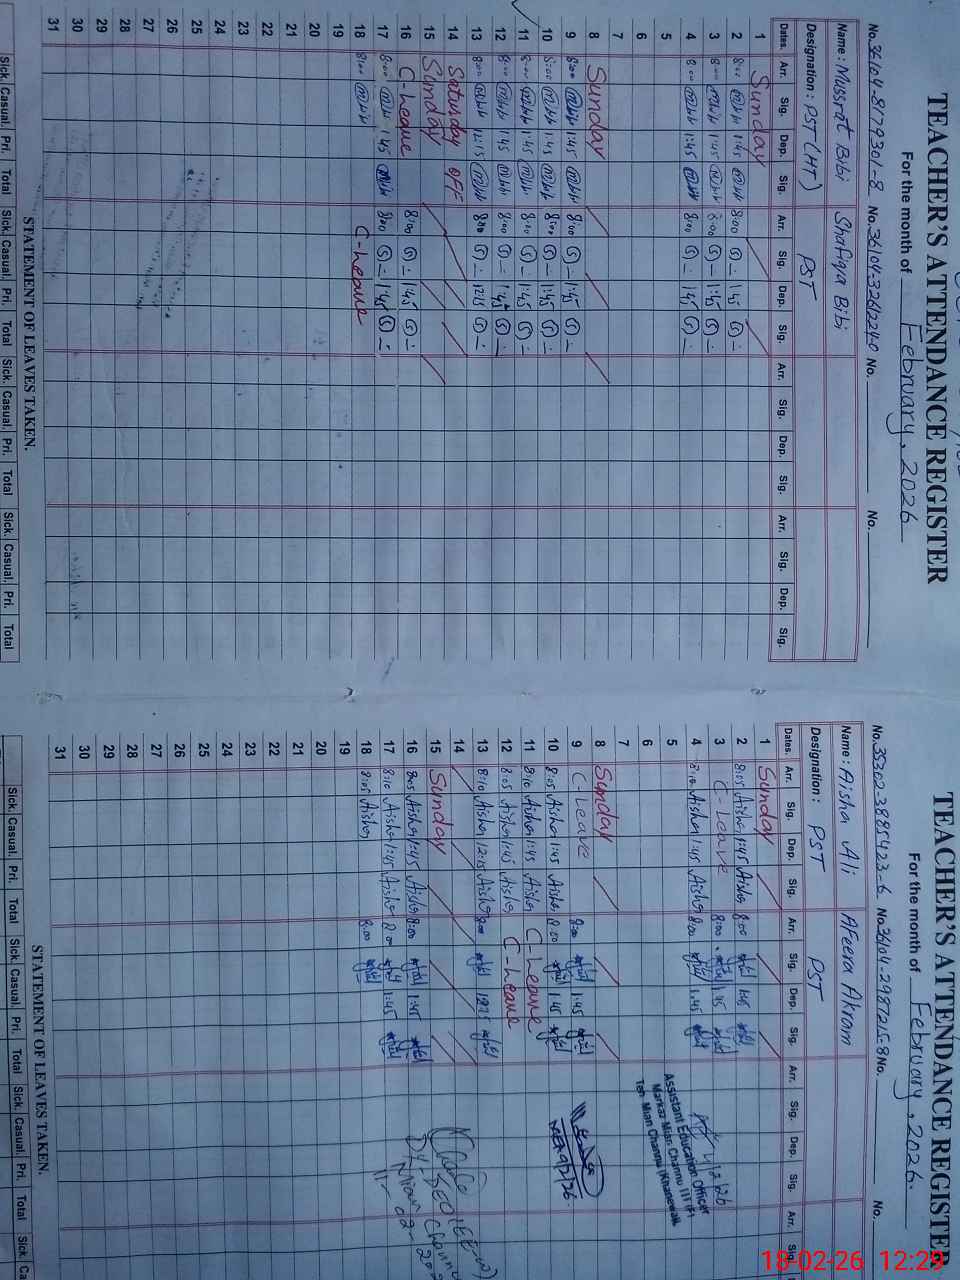 TEACHER'S ATTENDANCE REGISTER
For the month of February, 2026
No. 36104-8179301-8 No. 36104-3261224-0 No. No.
Name: Mussrat Bibi Shafiqa Bibi
Designation: PST (HT) PST
Dates. Arr. Sig. Dep. Sig. Arr. Sig. Dep. Sig. Arr. Sig. Dep. Sig. Arr. Sig. Dep. Sig.
1 Sunday
2 8:00 1:45 8:00 1:45
3 8:00 1:45 8:00 1:45
4 8:00 1:45 8:00 1:45
5
6
7
8 Sunday
9 8:00 1:45 8:00 1:45
10 8:00 1:45 8:00 1:45
11 8:00 1:45 8:00 1:45
12 8:00 1:45 8:00 1:45
13 8:00 12:15 8:00 12:15
14 Saturday OFF
15 Sunday
16 C-leave 8:00 1:45
17 8:00 1:45 8:00 1:45
18 8:00 C-leave
19
20
21
22
23
24
25
26
27
28
29
30
31
STATEMENT OF LEAVES TAKEN.
Sick. Casual. Pri. Total Sick. Casual. Pri. Total Sick. Casual. Pri. Total Sick. Casual. Pri. Total
TEACHER'S ATTENDANCE REGISTER
For the month of February, 2026.
No. 35302-3895423-6 No. 36104-2987215-8 No. No.
Name: Aisha Ali Afeera Akram
Designation: PST PST
Dates. Arr. Sig. Dep. Sig. Arr. Sig. Dep. Sig. Arr. Sig. Dep. Sig. Arr. Sig.
1 Sunday
2 8:05 Aisha 1:45 Aisha 8:00 1:45
3 C-Leave 8:00 1:45
4 8:10 Aisha 1:45 Aisha 8:00 1:45
5
6
7
8 Sunday
9 C-Leave 8:00 1:45
10 8:05 Aisha 1:45 Aisha 8:00 1:45
11 8:10 Aisha 1:45 Aisha C-leave
12 8:05 Aisha 1:45 Aisha C-leave
13 8:10 Aisha 12:15 Aisha 8:00 12:15
14
15 Sunday
16 8:05 Aisha 1:45 Aisha 8:00 1:45
17 8:10 Aisha 1:45 Aisha 8:00 1:45
18 8:05 Aisha 8:00
19
20
21
22
23
24
25
26
27
28
29
30
31
4/2/26
Assistant Education Officer
Markaz Mian Channu III (F)
Teh. Mian Channu (Khanewal)
9/2/26
Dy. DEO (EE-W)
Mian Channu
STATEMENT OF LEAVES TAKEN.
Sick. Casual. Pri. Total Sick. Casual. Pri. Total Sick. Casual. Pri. Total Sick. Ca
18-02-26 12:29